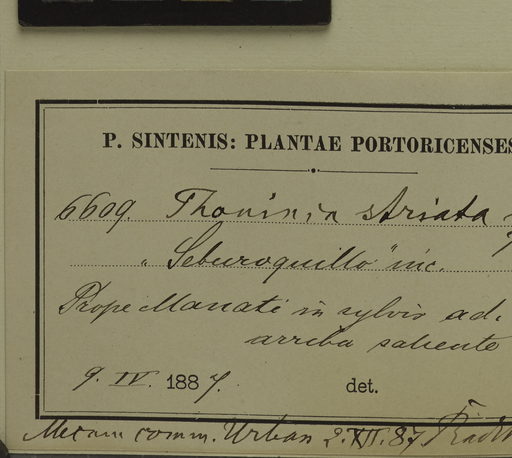 P. SINTENIS: PLANTAE PORTORICENSES
6609. Thouinia striata
"Seburoquillo" inc.
Prope Manati in sylvis ad.
arriba saliente
9. IV. 1887.
det.
Mecum comm. Urban 2. XII. 87